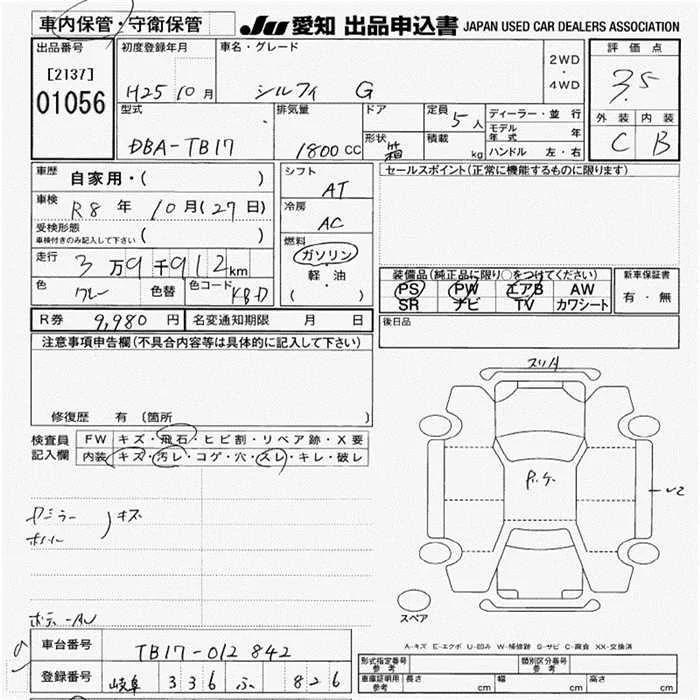 車内保管・守衛保管 JU 愛知 出品申込書 JAPAN USED CAR DEALERS ASSOCIATION
出品番号 初度登録年月 車名・グレード 2WD・4WD 評価点
[2137] 01056 H25 10月 シルフィ G 3.5
型式 排気量 ドア 定員 5人 ディーラー・並行 外装 内装
DBA-TB17 1800cc 形状 箱 積載 kg モデル年式 年 C B
ハンドル 左・右
車歴 自家用・( ) シフト AT セールスポイント(正常に機能するものに限ります)
車検 R8年 10月(27日) 冷房 AC
受検形態 車検付きのみ記入して下さい ( ) 燃料 ガソリン・軽油 ( )
走行 3万9千912km
装備品(純正品に限り○をつけてください) 新車保証書
色 グレー 色替 色コード KAD PS PW エアB AW 有・無
SR ナビ TV カワシート
R券 9,980円 名変通知期限 月 日 後日品
注意事項申告欄(不具合内容等は具体的に記入して下さい)
修復歴 有 〔箇所 〕
検査員記入欄 FW キズ・飛石・ヒビ割・リペア跡・X要
内装 キズ・汚レ・コゲ・穴・スレ・キレ・破レ
スリキ
P.ケ.
キズ
スペア
A-キズ E-エクボ U-凹み W-補修跡 S-サビ C-腐食 XX-交換済
車台番号 TB17-012842 型式指定番号 参考 類別区分番号 参考
登録番号 岐阜 336 ふ 826 車庫証明用 参考 長さ cm 幅 cm 高さ cm